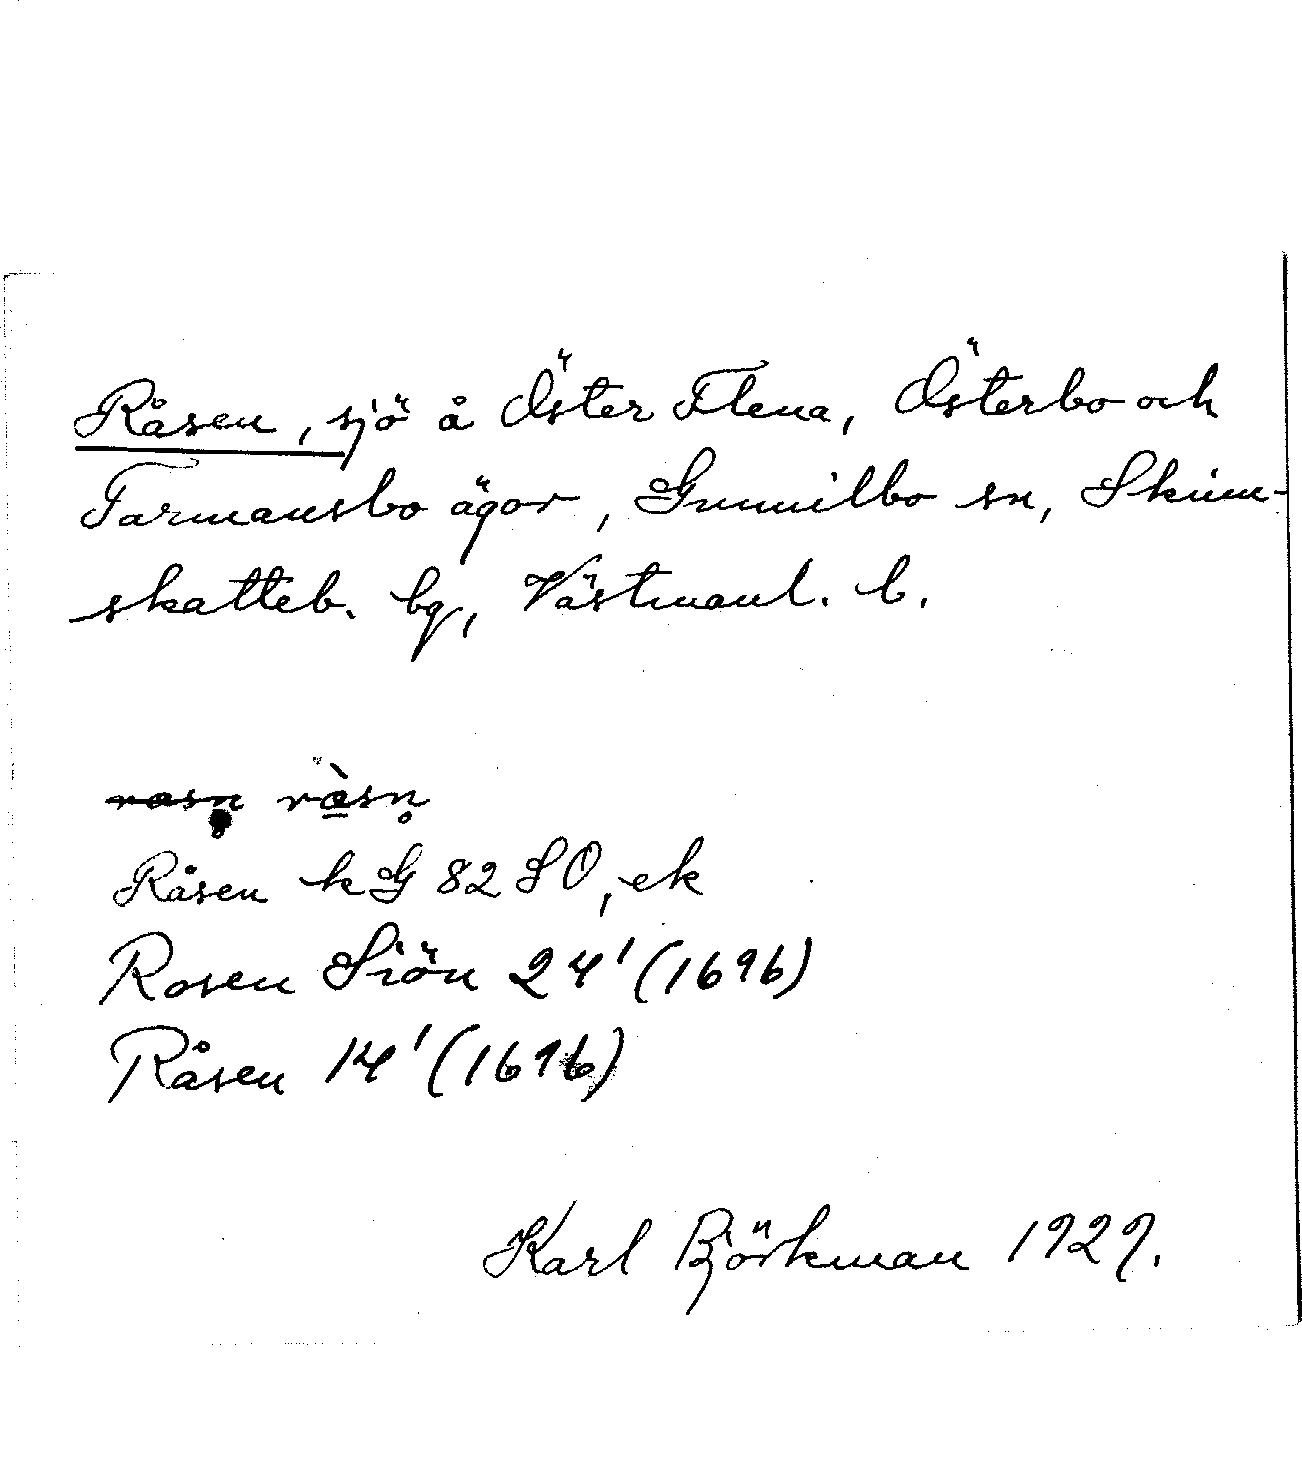 Råsen, sjö å Öster Flena, Österbo och
Farmansbo ägor, Gunnilbo sn, Skinn-
skatteb. bg, Västmanl. l.
rasn ràsn̥
Råsen kG 82 SO, ek
Rosen Siön 24' (1696)
Råsen 14' (1696)
Karl Björkman 1929.